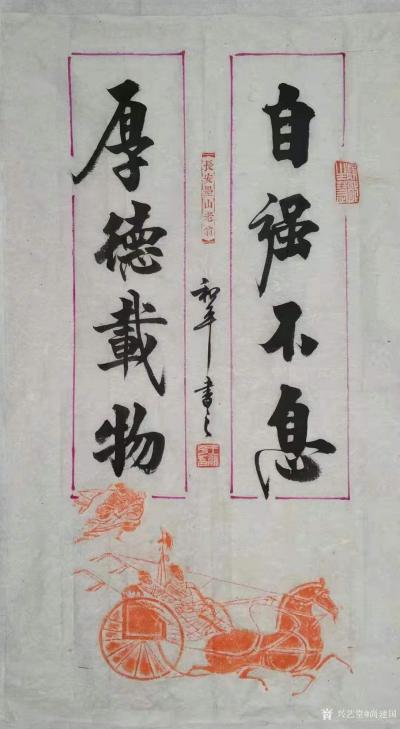 自强不息
厚德載物
【長安墨山老翁】
和平書之
兴艺堂@尚建国